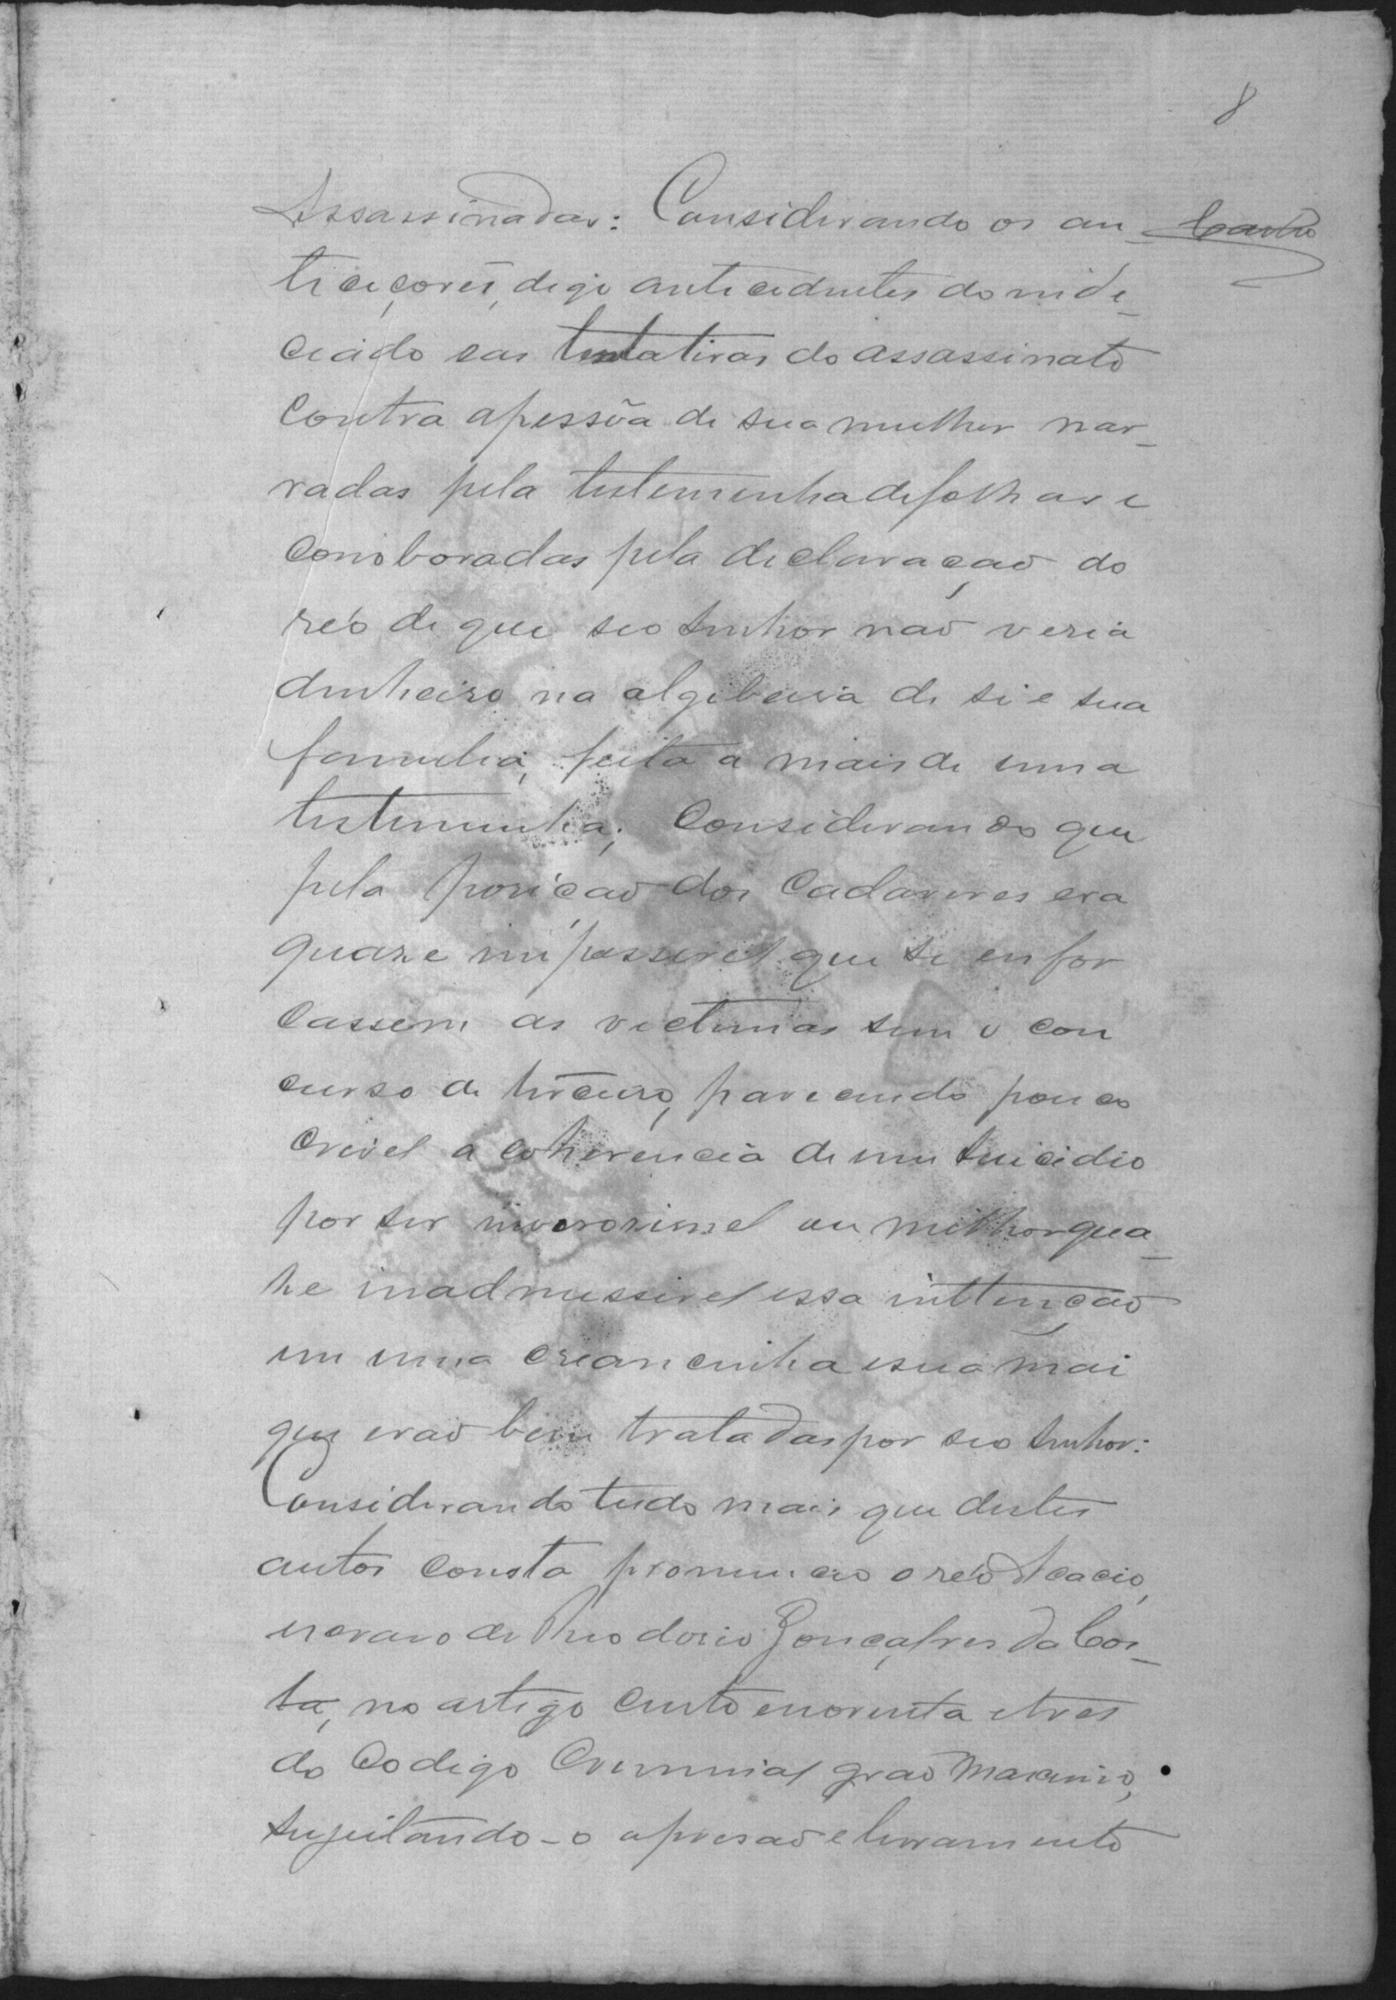 8
Assassinadas: Considerando os an- Castro
ticiçores, digo antecedentes do indi-
ciado e as tentativas do assassinato
contra a pessôa de sua mulher nar-
radas pela testemunha de folhas e
corroboradas pela declaração do
réo de que seo senhor não veria
dinheiro na algibeira de si e sua
familia, feita a mais de uma
testemunha; Considerando que
pela posição dos cadaveres era
quaze impossivel que se enfor
cassem as victimas sem o con
curso de terceiro, parecendo pouco
crivel a coherencia de um suicidio
por ser inverosimel ou milhor qua-
ze inadmissivel essa inttenção
em uma creancinha e sua mai
que erão bem tratadas por seo senhor:
Considerando tudo mais que destes
autos consta pronuncio o réo Acacio,
escravo de Theodosio Gonçalves da Cos-
ta, no artigo cento e noventa e tres
do Codigo Criminal grao Maximo,
sujeitando-o a prisão e livramento